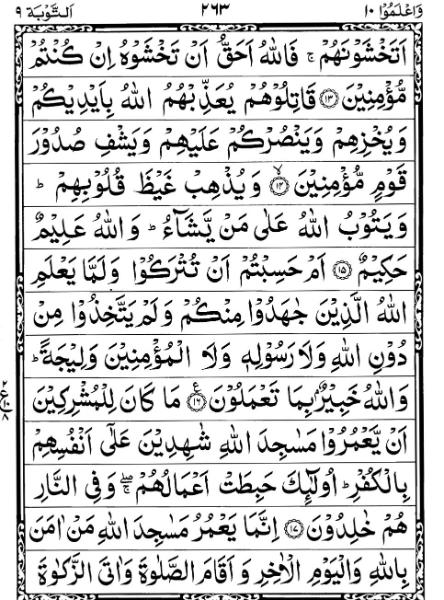 وَاعْلَمُوْۤا ١٠ ٢٦٣ اَلتَّوْبَة ٩
اَتَخْشَوْنَهُمْ ۚ فَاللّٰهُ اَحَقُّ اَنْ تَخْشَوْهُ اِنْ كُنْتُمْ
مُّؤْمِنِيْنَ ﴿١٣﴾ قَاتِلُوْهُمْ يُعَذِّبْهُمُ اللّٰهُ بِاَيْدِيْكُمْ
وَيُخْزِهِمْ وَيَنْصُرْكُمْ عَلَيْهِمْ وَيَشْفِ صُدُوْرَ
قَوْمٍ مُّؤْمِنِيْنَ ﴿١٤﴾ۙ وَيُذْهِبْ غَيْظَ قُلُوْبِهِمْ ؕ
وَيَتُوْبُ اللّٰهُ عَلٰى مَنْ يَّشَآءُ ؕ وَاللّٰهُ عَلِيْمٌ
حَكِيْمٌ ﴿١٥﴾ اَمْ حَسِبْتُمْ اَنْ تُتْرَكُوْا وَلَمَّا يَعْلَمِ
اللّٰهُ الَّذِيْنَ جٰهَدُوْا مِنْكُمْ وَلَمْ يَتَّخِذُوْا مِنْ
دُوْنِ اللّٰهِ وَلَا رَسُوْلِهٖ وَلَا الْمُؤْمِنِيْنَ وَلِيْجَةً ؕ
وَاللّٰهُ خَبِيْرٌۢ بِمَا تَعْمَلُوْنَ ﴿١٦﴾ مَا كَانَ لِلْمُشْرِكِيْنَ
اَنْ يَّعْمُرُوْا مَسٰجِدَ اللّٰهِ شٰهِدِيْنَ عَلٰٓى اَنْفُسِهِمْ
بِالْكُفْرِ ؕ اُولٰٓئِكَ حَبِطَتْ اَعْمَالُهُمْ ۚۖ وَفِي النَّارِ
هُمْ خٰلِدُوْنَ ﴿١٧﴾ اِنَّمَا يَعْمُرُ مَسٰجِدَ اللّٰهِ مَنْ اٰمَنَ
بِاللّٰهِ وَالْيَوْمِ الْاٰخِرِ وَاَقَامَ الصَّلٰوةَ وَاٰتَى الزَّكٰوةَ